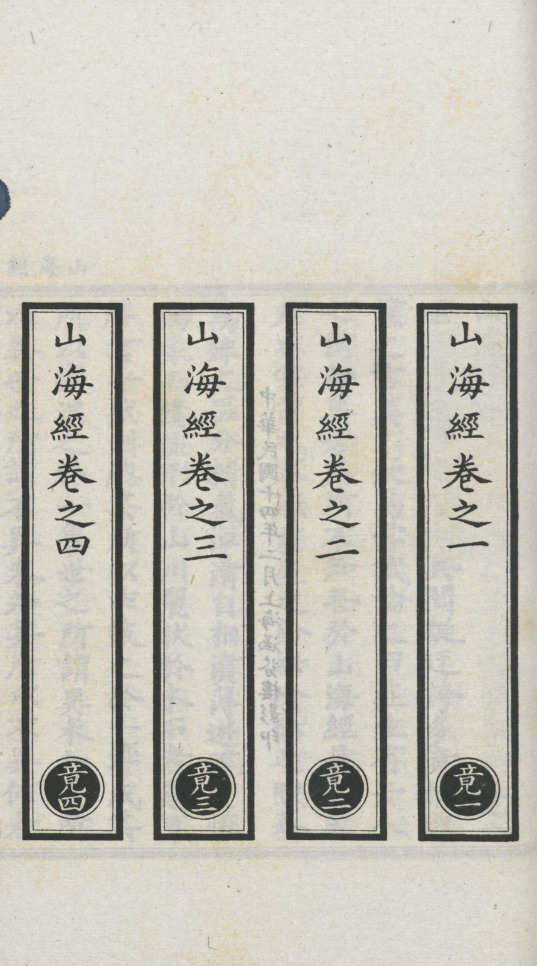 山海經卷之一
竟一
山海經卷之二
竟二
中華民國十四年二月上海涵芬樓影印
山海經卷之三
竟三
山海經卷之四
竟四